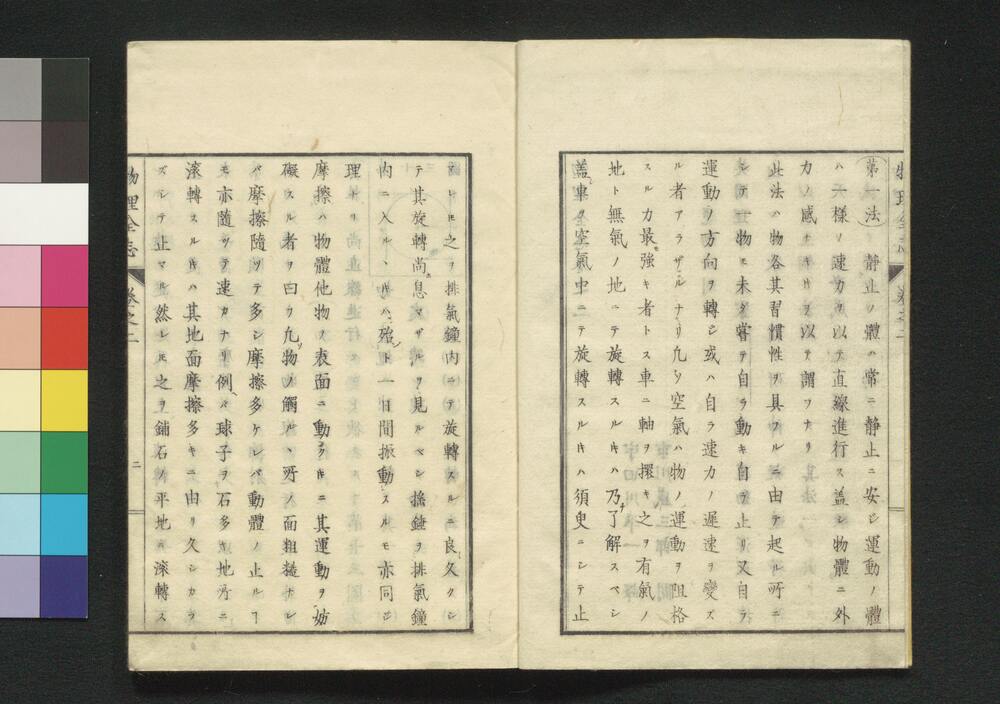 第一法 静止ノ體ハ常ニ静止ニ安シ運動ノ體
ハ一様ノ速力ヲ以テ直線進行ス盖シ物體ニ外
力ノ感ナキヲ以テ謂フナリ
此法ハ物各其習慣性ヲ具フルニ由テ起ル所ニ
シテ一物モ未タ嘗テ自ラ動キ自ラ止リ又自ラ
運動ノ方向ヲ轉シ或ハ自ラ速力ノ遅速ヲ變ズ
ル者アラザルナリ凡ソ空氣ハ物ノ運動ヲ阻格
スル力最強キ者トス車ニ軸ヲ擐キ之ヲ有氣ノ
地ト無氣ノ地ニテ旋轉スルキハ乃チ了解スベシ
盖車ヲ空氣中ニテ旋轉スルキハ須臾ニシテ止
之ヲ排氣鐘内ニテ旋轉スルニ良久クシ
テ其旋轉尚息マザルヲ見ルベシ搖錘ヲ排氣鐘
内ニ入ルヽキハ殆ント一日間振動スルモ亦同シ
理ナリ
摩擦ハ物體他物ノ表面ニ動クキニ其運動ヲ妨
礙スル者ヲ曰ク凡ソ物ノ觸ルヽ所ノ面粗糙ナレ
バ摩擦隨ツテ多シ摩擦多ケレバ動體ノ止ルヿ
モ亦隨ツテ速カナリ例ヘバ球子ヲ石多キ地所ニ
滚轉スルキハ其地面摩擦多キニ由リ久シカラ
ズシテ止マル然レ𪜈之ヲ鋪石ノ平地ニ滚轉ス
物理全志 巻之二
二